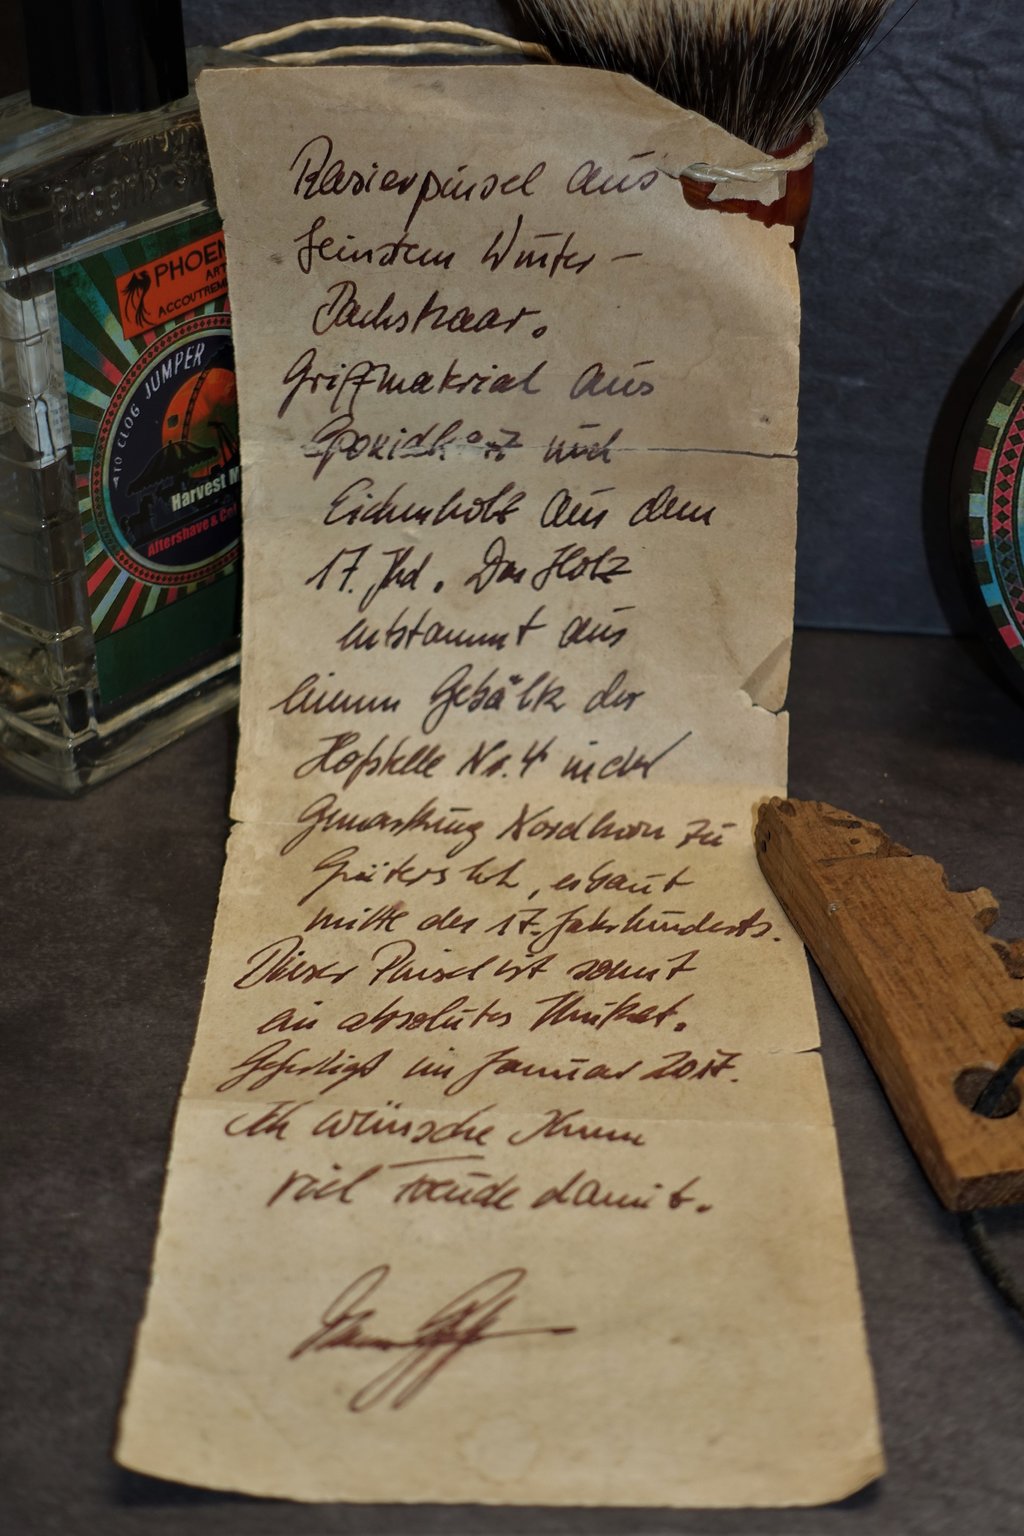 Rasierpinsel aus
feinstem Winter-
Dachshaar.
Griffmaterial aus
und
Eichenholz aus dem
17. Jhd. Das Holz
entstammt aus
einem Gebälk der
Hofstelle Nr. 4 in der
Gemarkung Nordhorn zu
Gütersloh, erbaut
mitte des 17. Jahrhunderts.
Dieser Pinsel ist somit
ein absolutes Unikat.
Gefertigt im Januar 2017.
Ich wünsche Ihnen
viel Freude damit.
PHOEN
ART
ACCOUTREME
CLOG JUMPER
Harvest M
Aftershave & Col